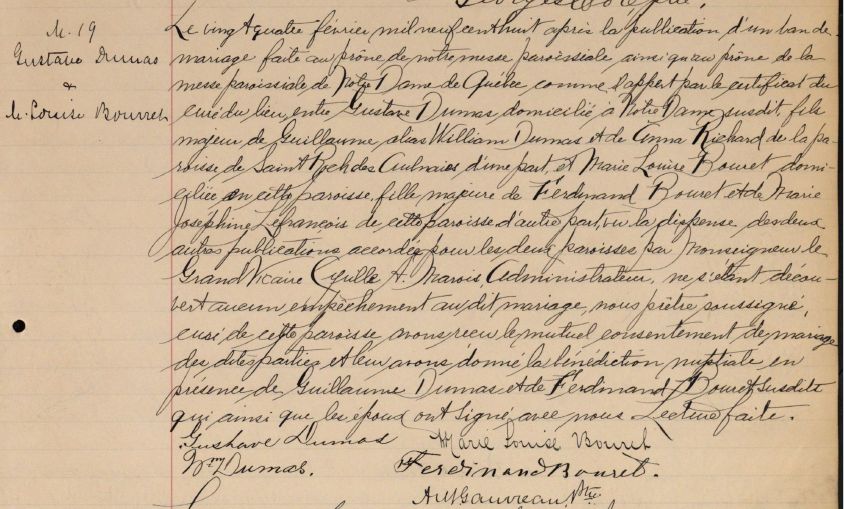 M. 19
Gustave Dumas
&
M. Louise Bourret
Le vingt quatre février mil neuf cent huit après la publication d'un ban de
mariage faite au prône de notre messe paroissiale ainsi qu'au prône de la
messe paroissiale de Notre Dame de Québec comme l'appert par le certificat du
curé du lieu, entre Gustave Dumas domicilié à Notre Dame susdit, fils
majeur de Guillaume alias William Dumas et de Anna Richard de la pa-
roisse de Saint Roch des Aulnaies d'une part, et Marie Louise Bouret domi-
ciliée en cette paroisse, fille majeure de Ferdinand Bouret et de Marie
Joséphine Lefrançois de cette paroisse d'autre part, vu la dispense des deux
autres publications accordée pour les deux paroisses par Monseigneur le
Grand Vicaire Cyrille A. Marois, Administrateur, ne s'étant décou-
vert aucun empêchement au dit mariage, nous prêtre soussigné,
curé de cette paroisse avons reçu le mutuel consentement de mariage
des dites parties et leur avons donné la bénédiction nuptiale en
présence de Guillaume Dumas et de Ferdinand Bouret susdits
qui ainsi que les époux ont signé avec nous Lecture faite.
Gustave Dumas Marie Louise Bourret
Wm Dumas. Ferdinand Bouret.
Gauvreau Ptre